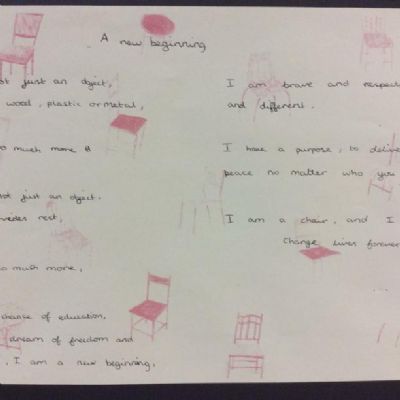 A new beginning
just an object,
wood, plastic or metal,
much more
just an object.
rest,
much more,
chance of education,
dream of freedom and
, I am a new beginning,
I am brave and
and different.
I have a purpose, to
peace no matter who you
I am a chair, and I
Change lives forever